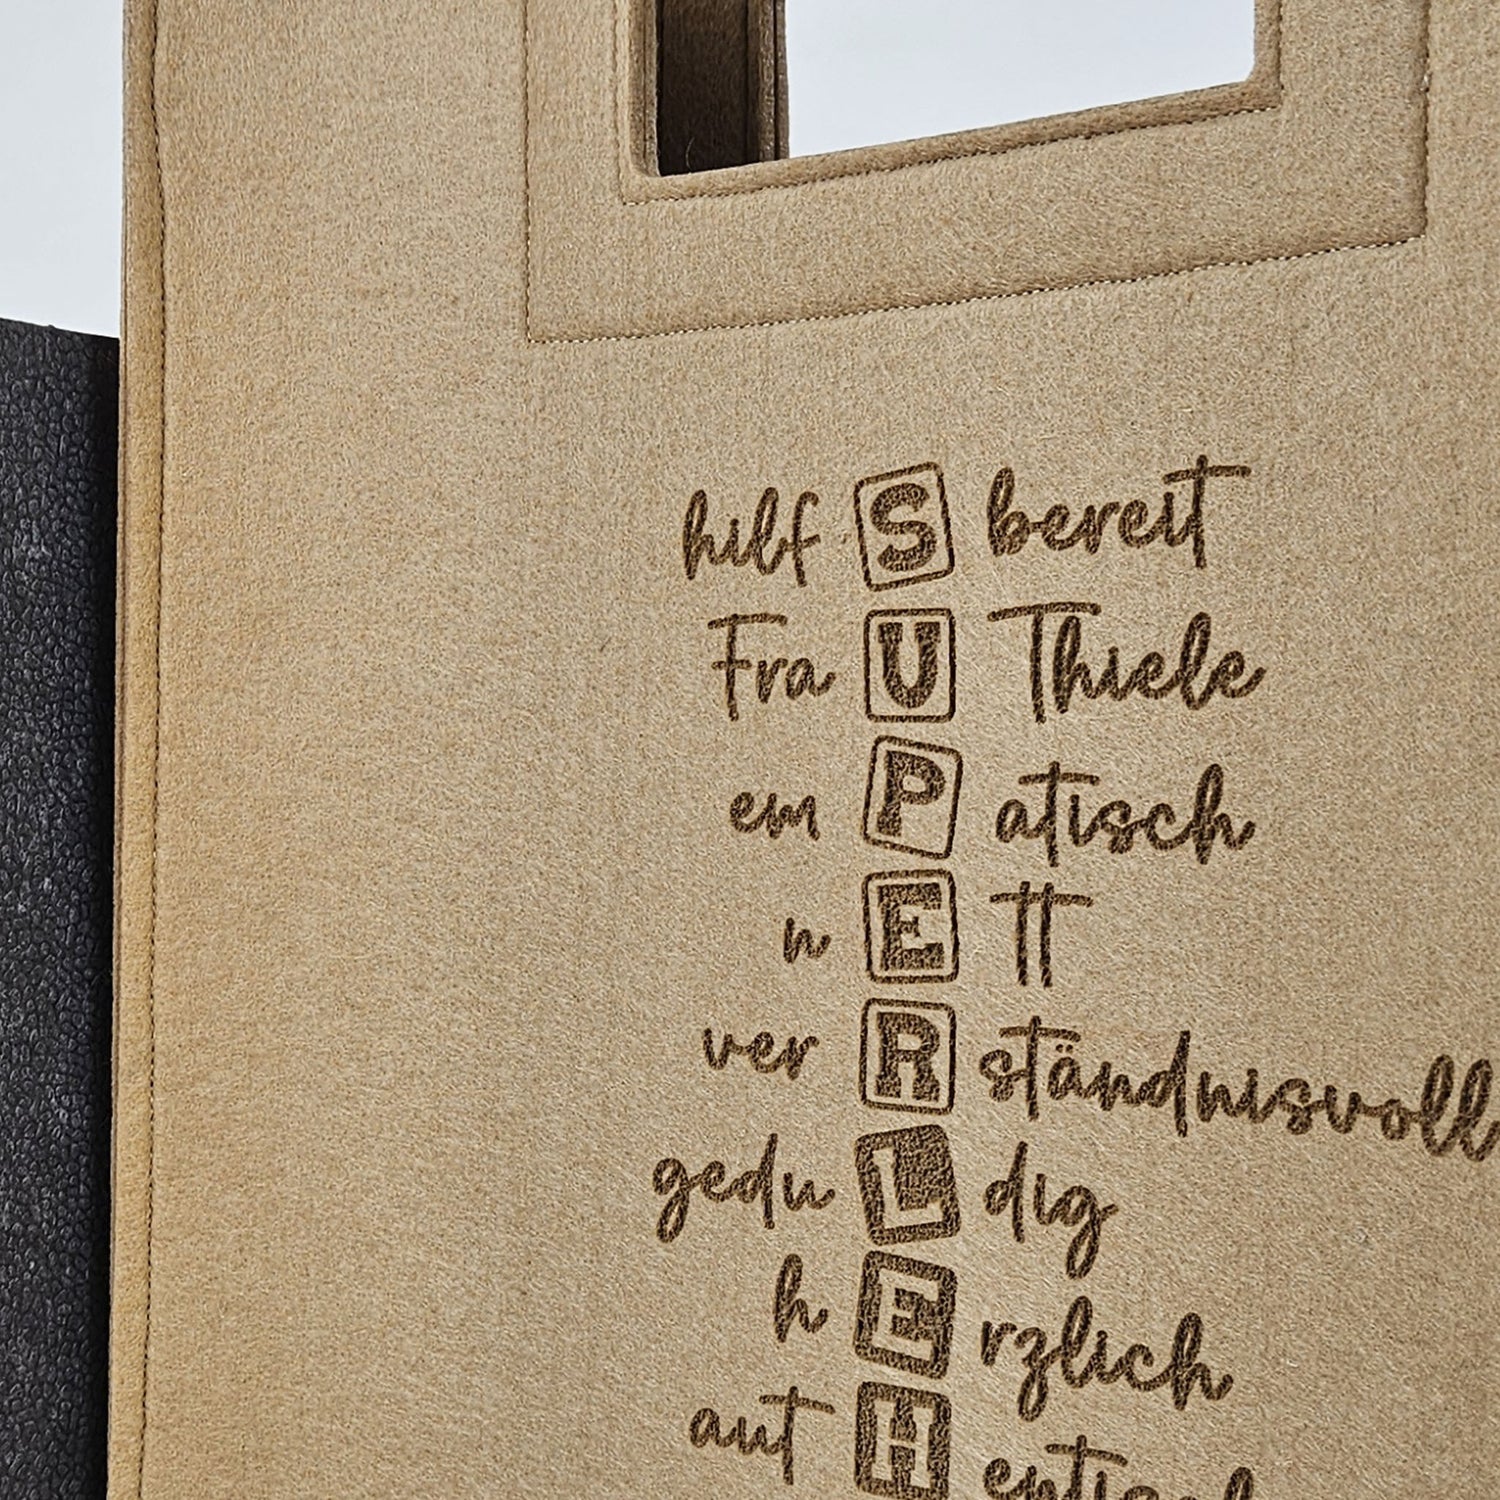 hilf S bereit
Fra U Thiele
em P atisch
n E tt
ver R ständnisvoll
gedu L dig
h E rzlich
aut H entisch